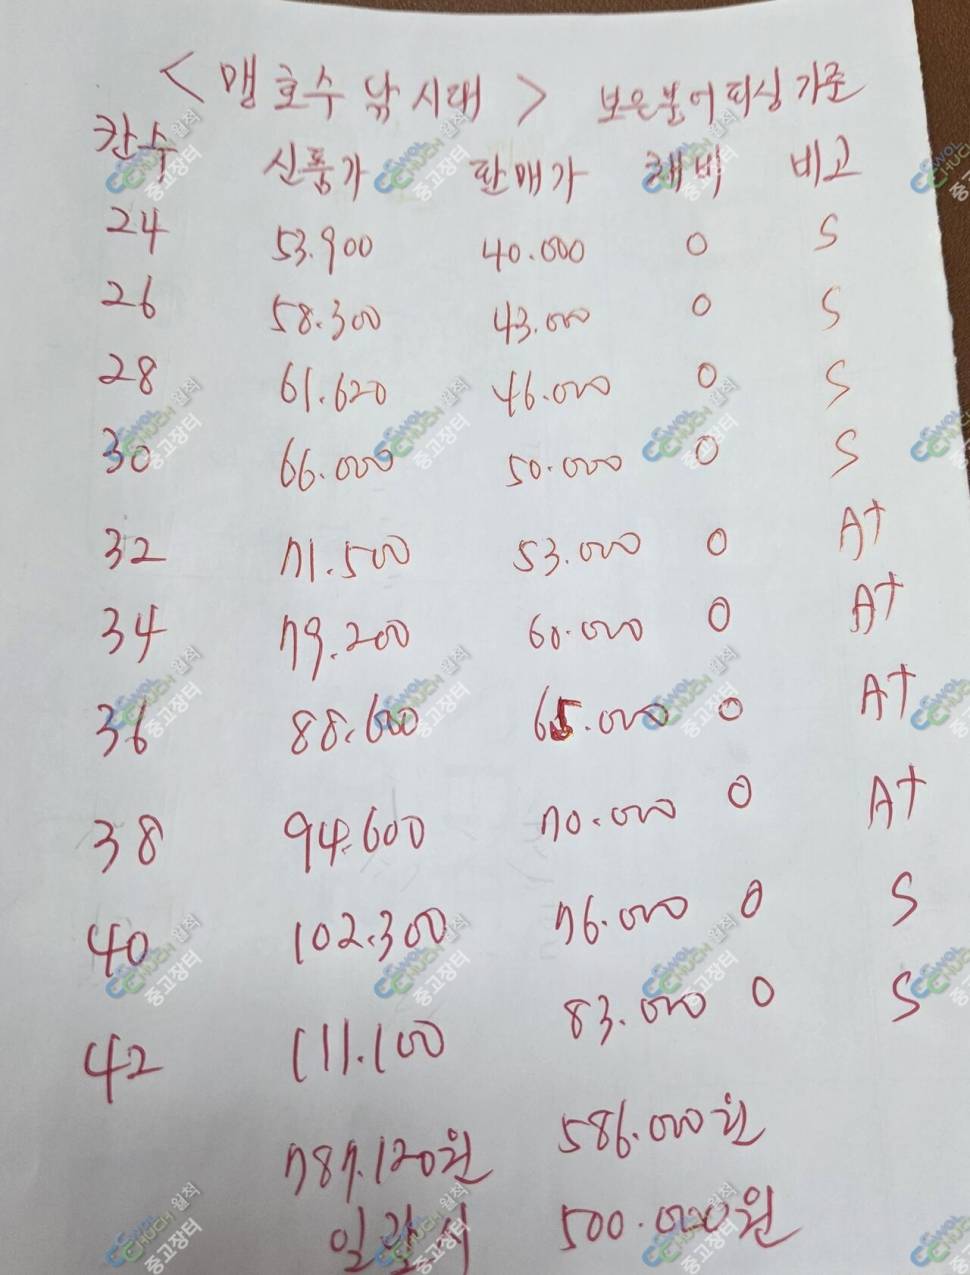 < 맹 호수 낚시대 > 보은붕어피싱 기준
칸수 신품가 판매가 해박 비고
24 53.900 40.000 0 S
26 58.300 43.000 0 S
28 61.620 46.000 0 S
30 66.000 50.000 0 S
32 71.500 53.000 0 A+
34 79.200 60.000 0 A+
36 88.600 65.000 0 A+
38 94.600 70.000 0 A+
40 102.300 76.000 0 S
42 111.100 83.000 0 S
787.120원 586.000원
일괄시 500.000원
WOL CHUCK 월척 중고장터